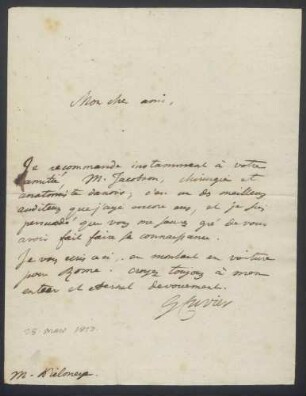 Mon che ami,
Je recommande instamment à votre
amitié, M. Jacobson, chirurgien et
anatomiste danois; c'est un des meilleurs
auditeurs que j'aye encore eus, et je suis
persuadé que vous me saurez gré de vous
avoir fait faire sa connaissance.
Je vous écris ceci en montant en voiture
pour Rome. croyez toujours à mon
entier et devouement.
G Cuvier
M.